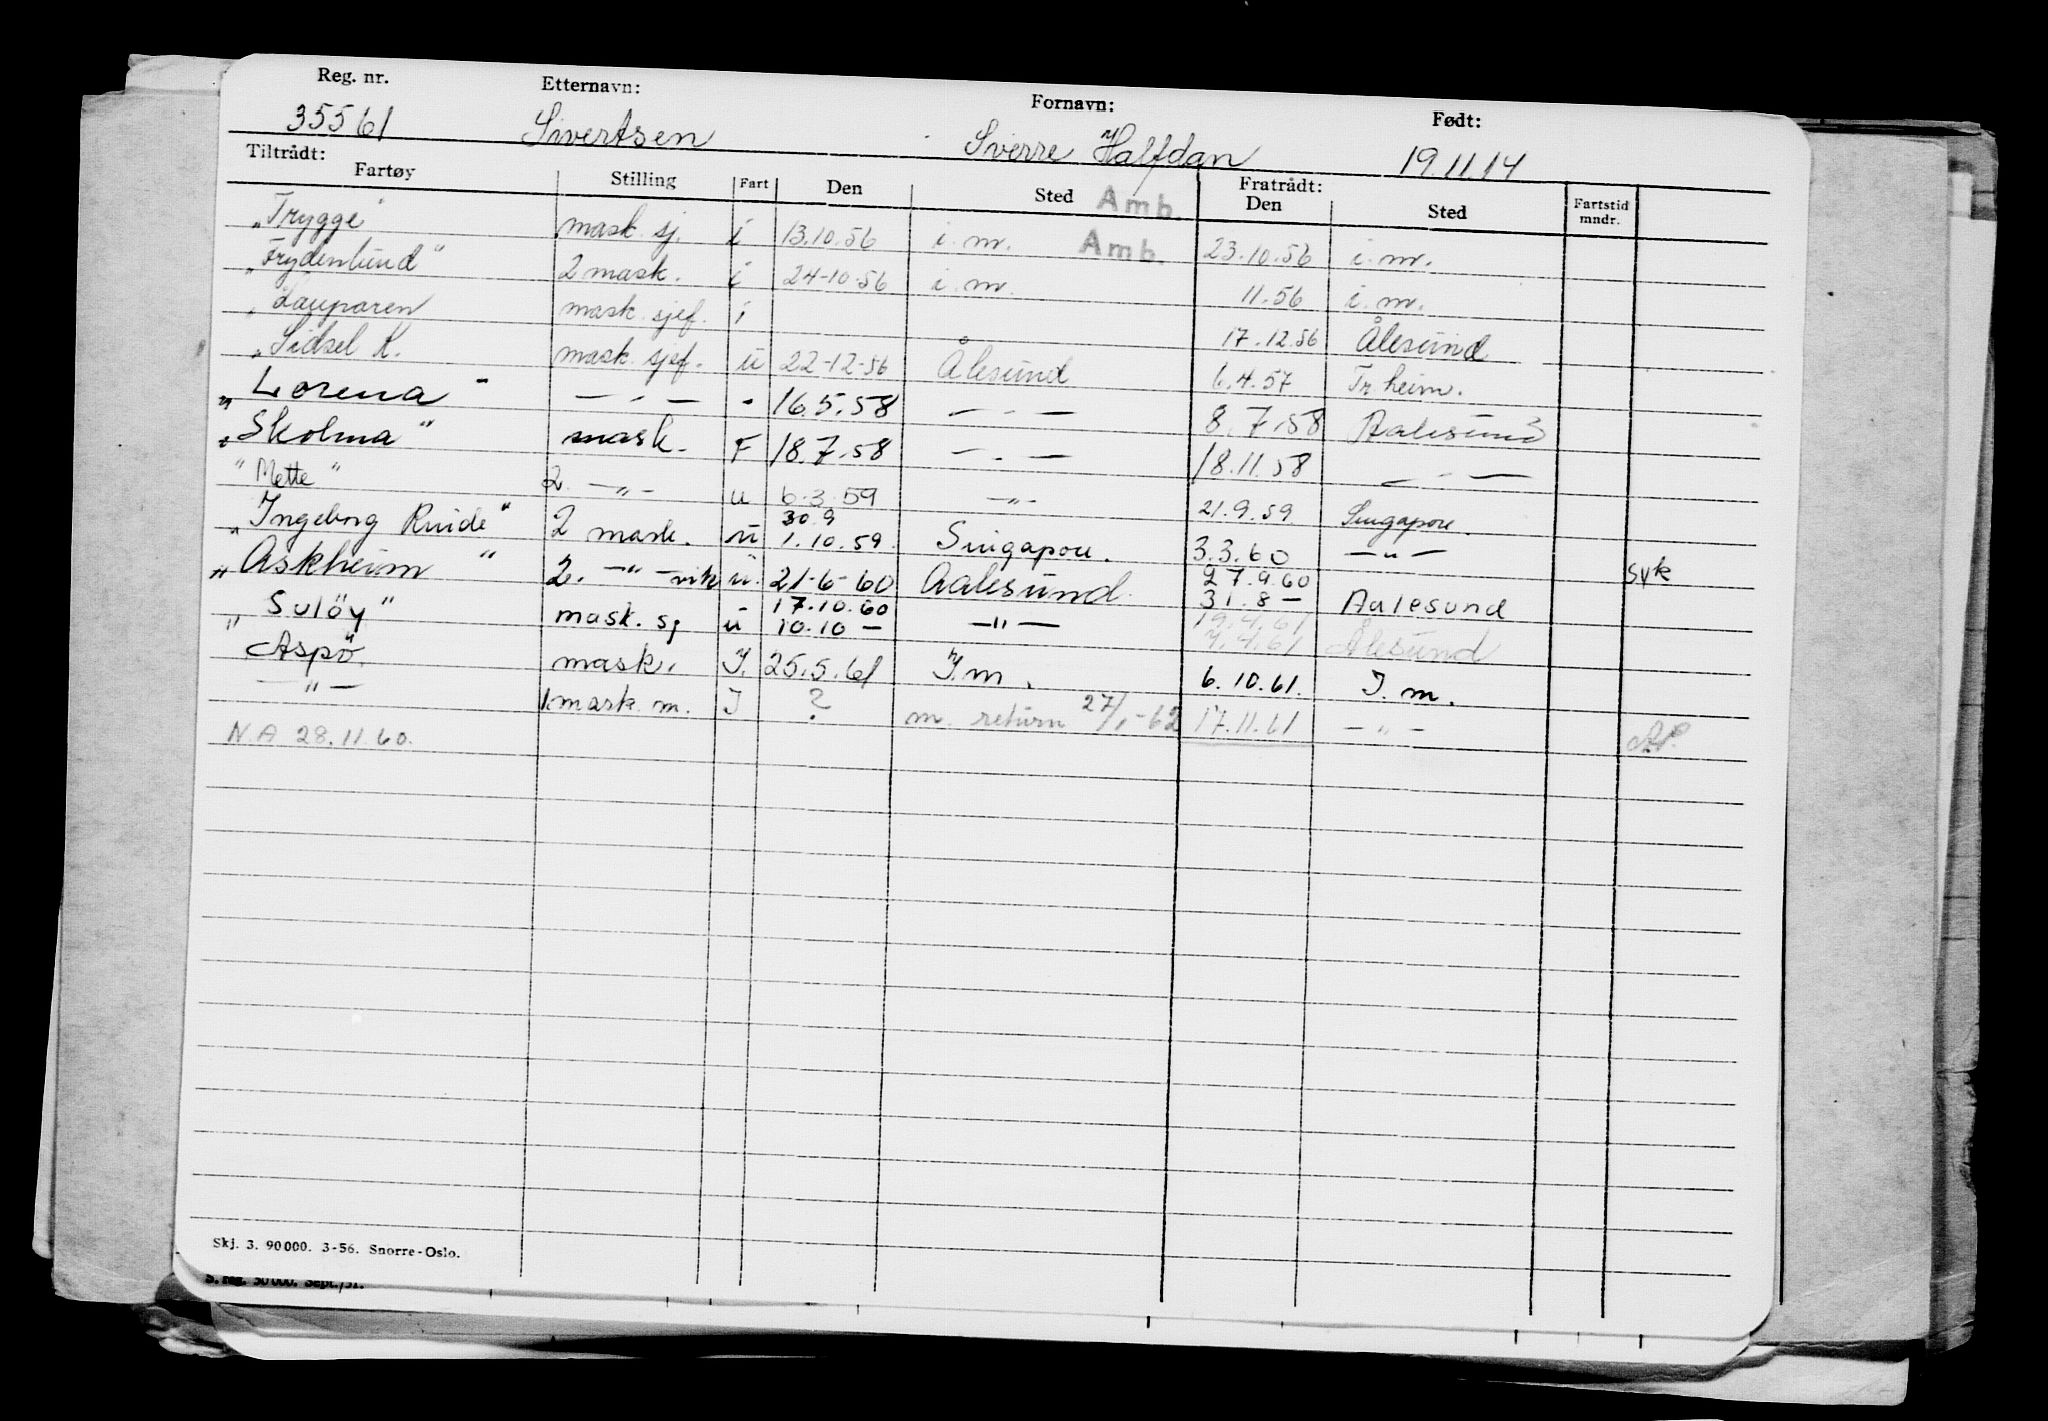 Reg. nr. Etternavn: Fornavn: Født:
35561 Sivertsen Sverre Halfdan 19.11.14
Tiltrådt: Fratrådt:
Fartøy Stilling Fart Den Sted Amb. Den Sted Fartstid mndr.
„Trygge" mask. sj. i 13.10.56 i. m. Amb. 23.10.56 i. m.
„Frydenlund" 2 mask. i 24-10-56 i. m. 11.56 i. m.
„Lauparen mask. sjef. i 17.12.56 Ålesund
„Sidsel K. mask. sjef. u 22-12-56 Ålesund 6.4.57 Tr.heim.
„Lorena" — - — - 16.5.58 — - — 8.7.58 Aalesund
„Skolma" mask. F 18.7.58 — - — 18.11.58 — - —
"Mette" 2. —"— u 6.3.59 —"— 21.9.59 Singapore
30.9
„Ingeborg Rinde" 2 mask. u 1.10.59 Singapore. 3.3.60 —"—
27.9.60 syk
„Askheim" 2. —"— vik u. 21-6-60 Aalesund. 31.8 — Aalesund
17.10.60 19.4.61
„Suløy" mask. sj u 10.10 — —"— 4.4.61 Ålesund
Aspø. mask. I. 25.5.61 I.m. 6.10.61. I.m.
—"— 1.mask. m. I ? m. return 27/1-62 17.11.61 —"—
N.A 28.11.60.
Skj. 3. 90000. 3-56. Snorre-Oslo.
S. reg. 50000. Sept./51.